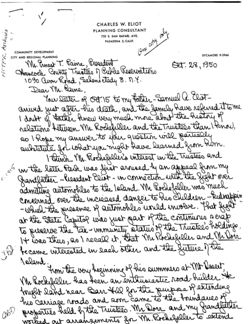 CHARLES W. ELIOT
PLANNING CONSULTANT
PASADENA 2, CALIF.
COMMUNITY DEVELOPMENT
CITY AND REGIONAL PLANNING
Oct. 28, 1950
Mr. Ernest T. Paine, President
Hancock County Trustees of Public Reservations
Schenectady 8. N.Y.
Dear Mr. Paine,
Your letter of Oct 15 to my father, Samuel A. Eliot
arrived just after his death, and the family have referred it to me
I don't of father knew very much more about the history of
relations between Mr. Rockefeller and the Trustees than I know,
so I hope my answer to this question will adequately
substitute for what you might have learned from him.
I think Mr. Rockefeller's interest in the Trustees and
in the later Park was first aroused by an appeal from my
Grandfather - President Eliot - in connection with the fight over
admitting automobiles to the Island. Mr. Rockefeller was much
concerned over the increased danger to his children - kidnapping
- which the presence of automobiles would involve. That fight
at the State Capitol was just part of the continuous effort
to preserve the tax-immunity status of the Trustees holdings.
It was thus, as I recall it, that Mr. Rockefeller and Mr. Dorr
became interested in each other and the future of the
Island.
From the very beginning of his summers at Mt Desert
Mr. Rockefeller has been an enthusiastic road builder. He
bought land near Seal Hbr. for the purpose of extending
his carriage roads and soon came to the boundaries of
properties held by the Trustees. Mr. Dorr and my grandfather
worked out arrangements for Mr. Rockefeller to extend